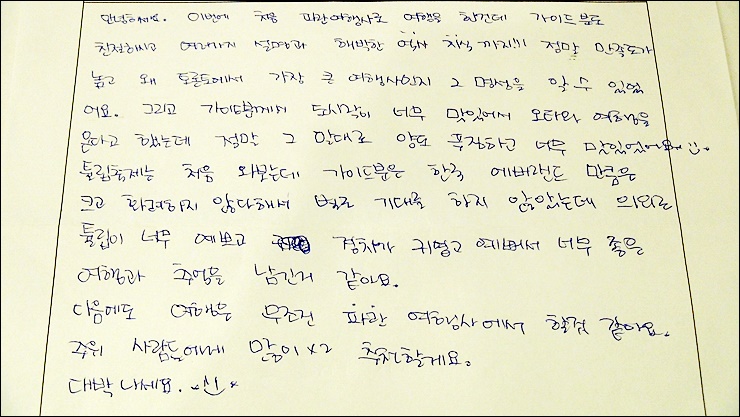 안녕하세요. 이번에 처음 파란여행사로 여행을 한건데 가이드분도
친절하시고 여러가지 설명과 해박한 역사 지식까지!!! 정말 만족도가
높고 왜 토론토에서 가장 큰 여행사인지 그 명성을 알 수 있었
어요. 그리고 가이드분께서 도시락이 너무 맛있어서 오타와 여행을
온다고 했는데 정말 그 말대로 양도 풍장하고 너무 맛있었어요 :).
튤립축제는 처음 와보는데 가이드분은 한국 에버랜드 만큼은
크고 화려하지 않다해서 별로 기대를 하지 않았는데 의외로
튤립이 너무 예쁘고 경치가 귀엽고 예뻐서 너무 좋은
여행과 추억을 남긴거 같아요.
다음에도 여행은 무조건 파란 여행사에서 할것 같아요.
주위 사람들에게 많이x2 추천할게요.
대박나세요.